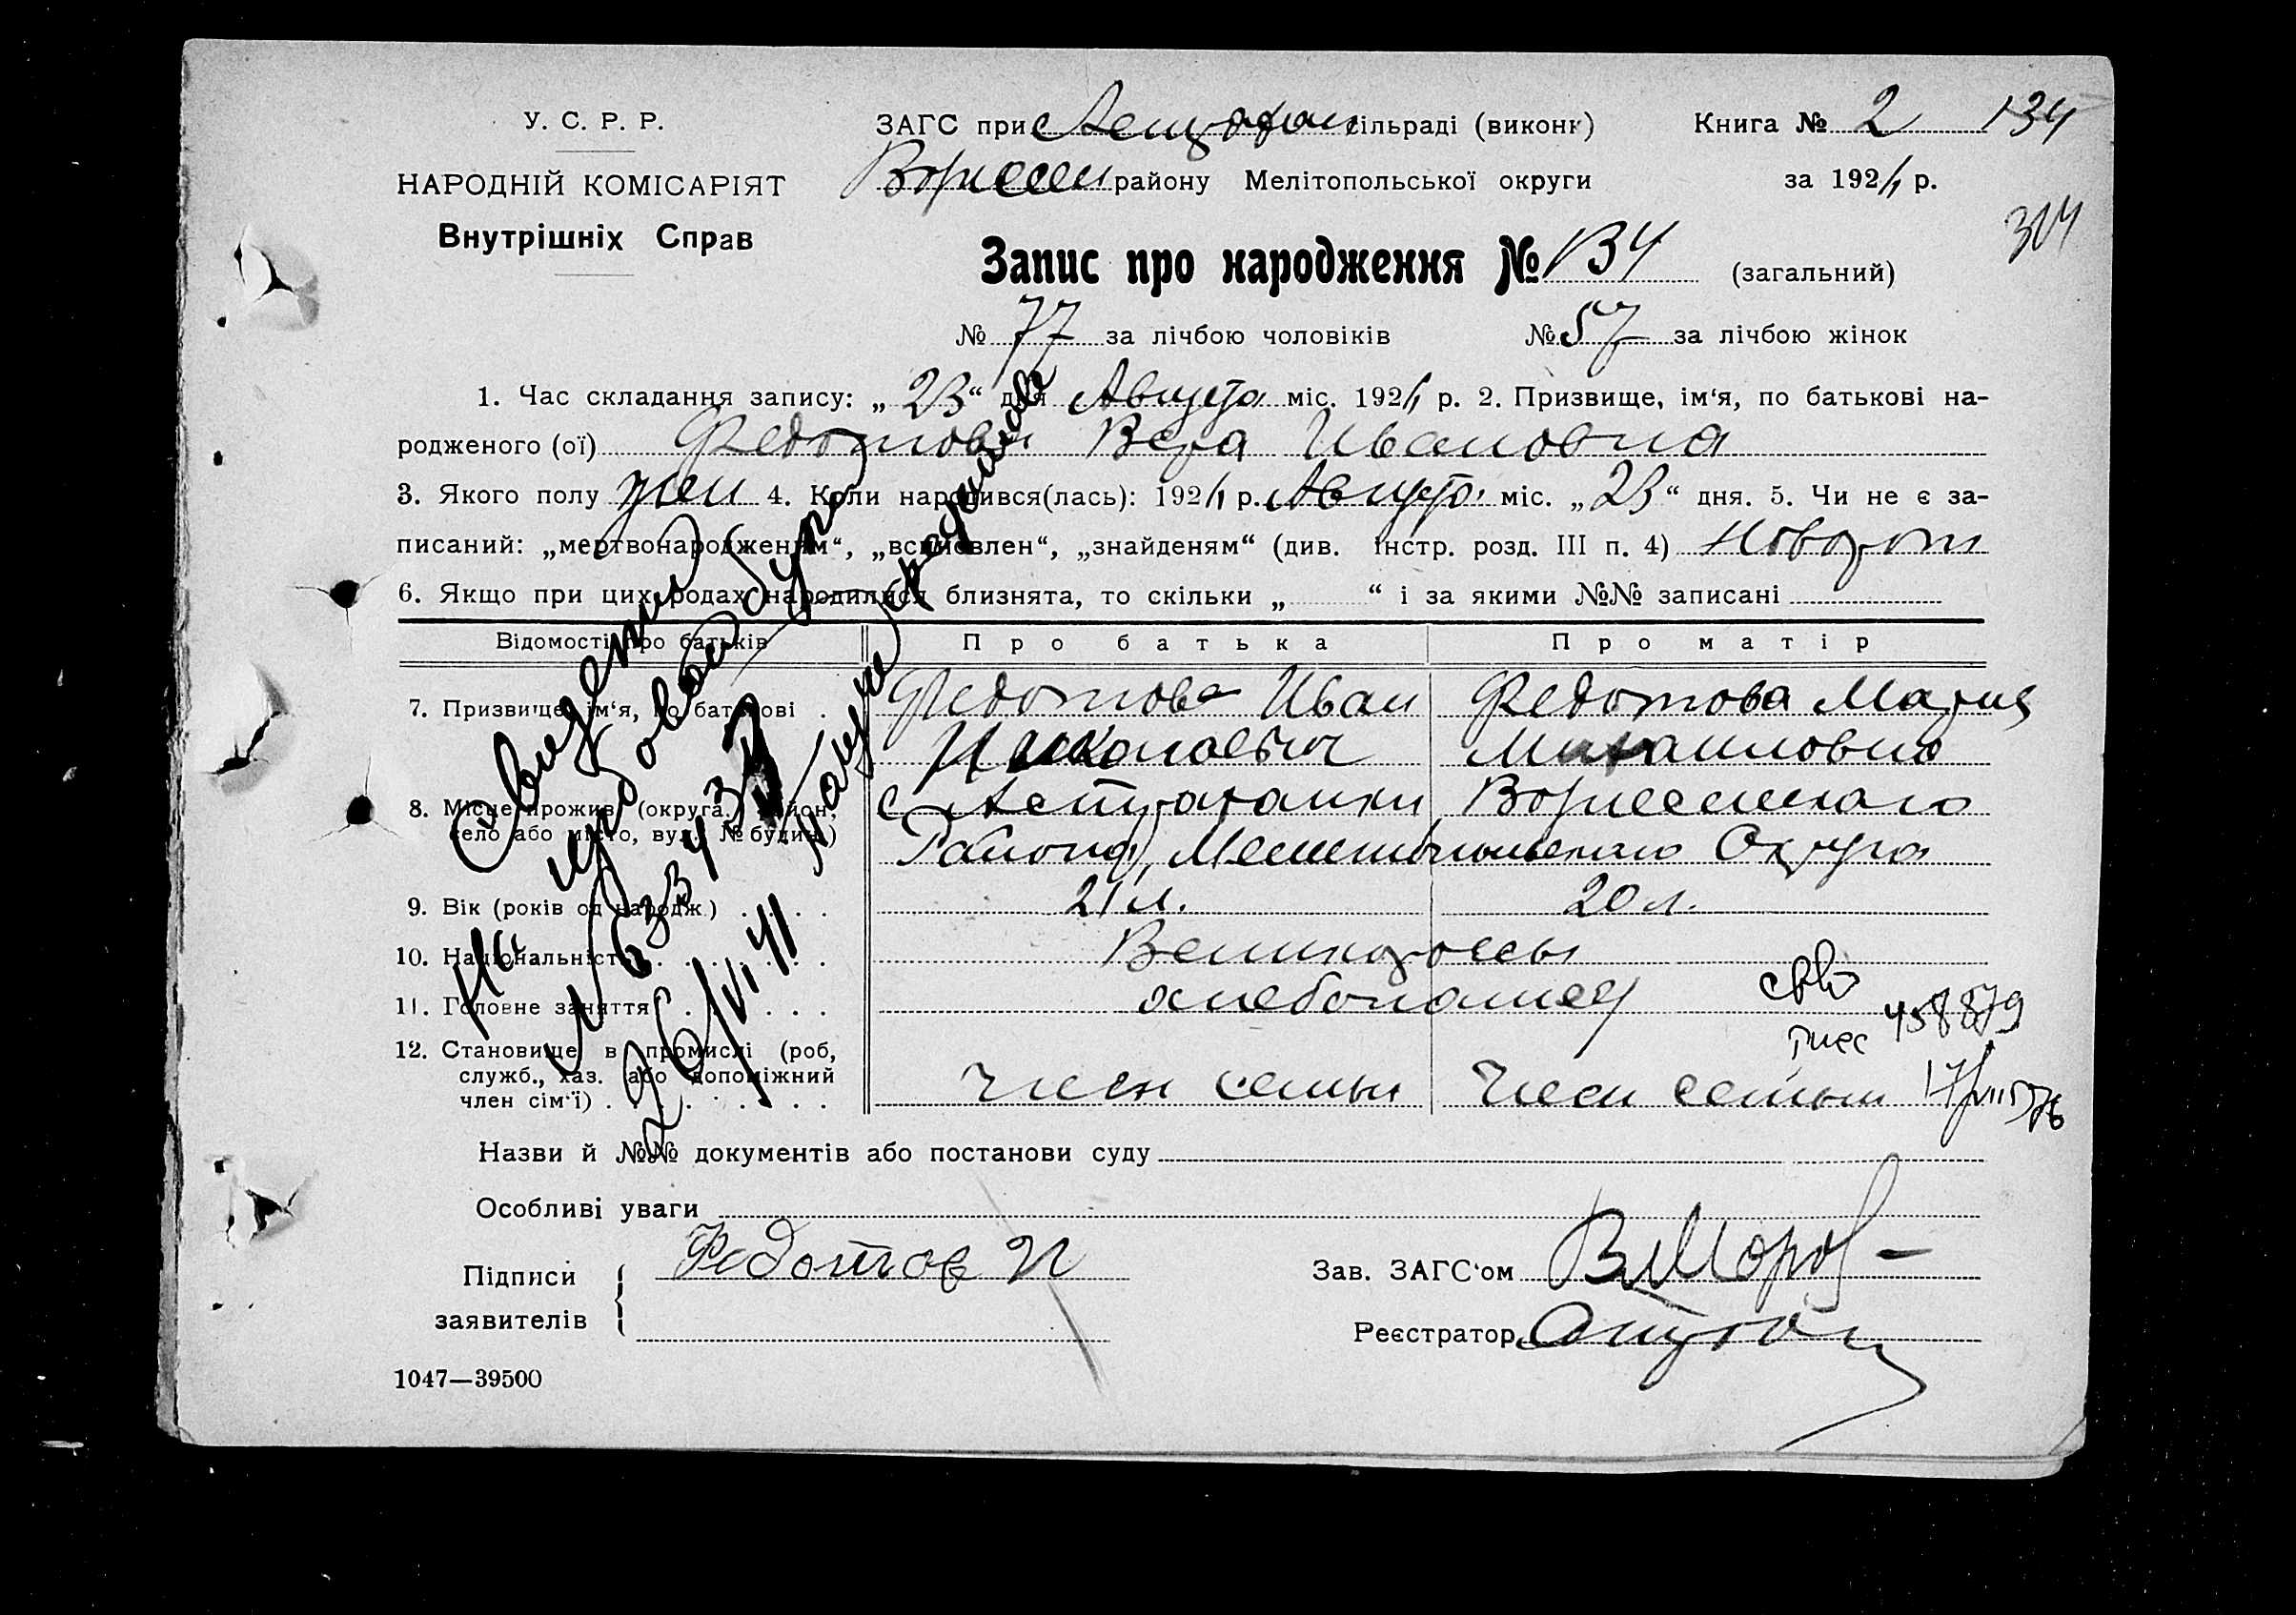 У. С. Р. Р.
НАРОДНІЙ КОМІСАРІЯТ
Внутрішніх Справ
ЗАГС при с Астрахан сільраді (виконк)
району Мелітопольської округи
Книга № 2 134
за 1924 р.
304
Запис про народження № 134 (загальний)
№ 77 за лічбою чоловіків № 57 за лічбою жінок
1. Час складання запису: „23“ дня Августа міс. 1924 р. 2. Призвище, ім‘я, по батькові на-
родженого (ої) Федотова Вера Ивановна
3. Якого полу жен 4. Коли народився(лась): 1924 р. Августа міс. „23“ дня. 5. Чи не є за-
писаний: „мертвонародженям“, „всиновлен“, „знайденям“ (див. інстр. розд. III п. 4) Новорот
6. Якщо при цих родах народилися близнята, то скільки „ “ і за якими №№ записані
Відомості про батьків Про батька Про матір
7. Призвище, ім‘я, по батькові Федотов Иван Федотова Мария
Николаевич Михаиловна
8. Місце прожив. (округа, район, с Астраханки
село або місто, вул. № будин.) Района, Мелитопольскаго Округа
9. Вік (років од народж.) 21 л. 20 л.
10. Національність Великороссы
11. Головне заняття хлебопашец
12. Становище в промислі (роб,
служб., хаз. або допоміжний
член сім‘ї) Член семьи Член семьи
458879
Назви й №№ документів або постанови суду
Особливі уваги
Підписи
заявителів
Федотов И
Зав. ЗАГС‘ом
Реєстратор
1047—39500
26/VI 41